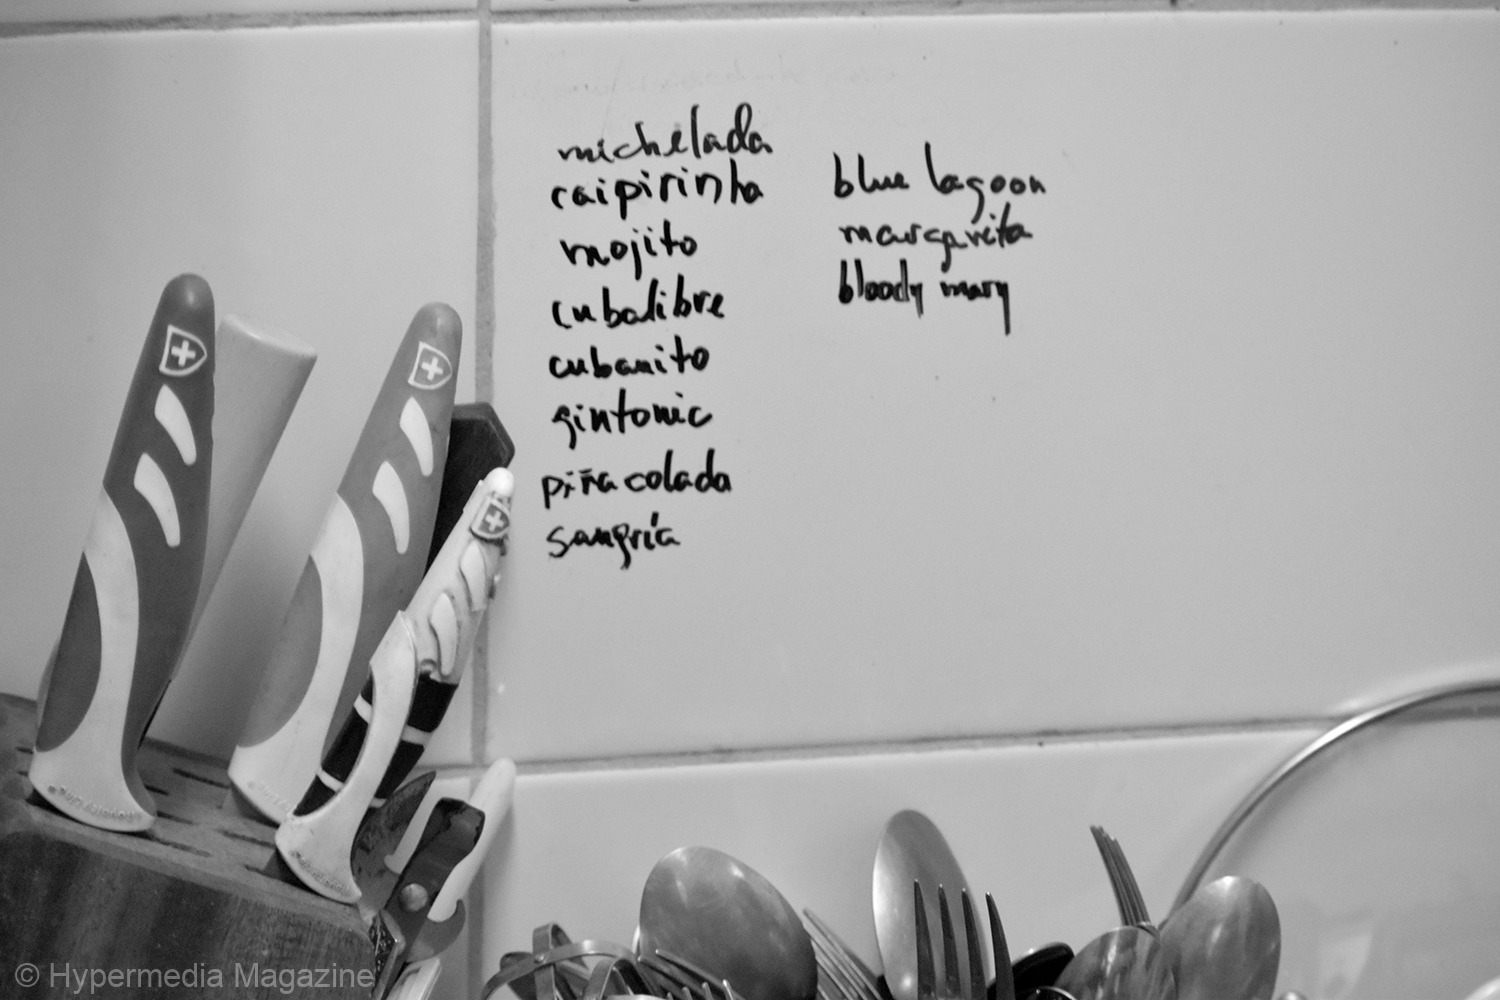 michelada
caipirinha
mojito
cubalibre
cubanito
gintonic
piña colada
sangría
blue lagoon
margarita
bloody mary
© Hypermedia Magazine